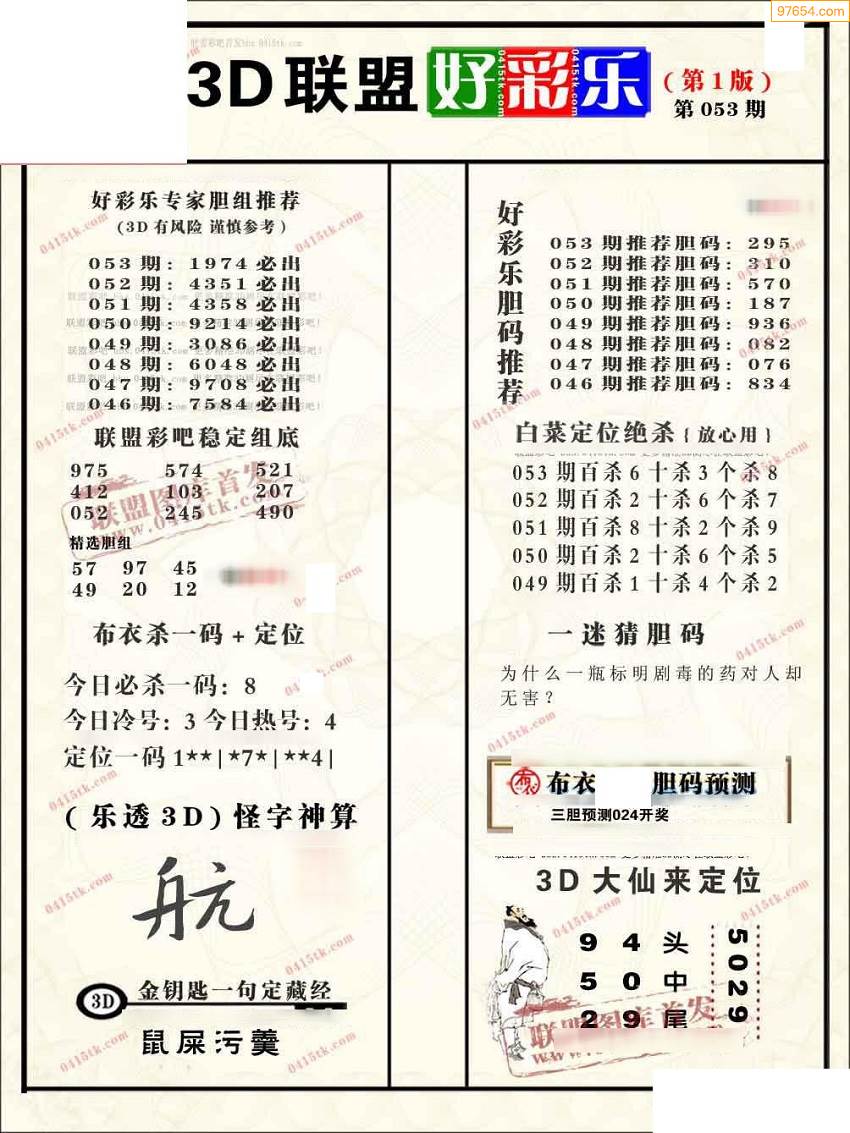 97654.com
3D联盟好彩乐(第1版)
第053期
好彩乐专家胆组推荐
(3D有风险 谨慎参考)
053期：1974必出
052期：4351必出
051期：4358必出
050期：9214必出
049期：3086必出
048期：6048必出
047期：9708必出
046期：7584必出
联盟彩吧稳定组底
975 574 521
412 103 207
052 245 490
联盟图库首发
www.0415tk.com
精选胆组
57 97 45
49 20 12
布衣杀一码+定位
今日必杀一码：8
今日冷号：3 今日热号：4
定位一码1**|*7*|**4|
(乐透3D)怪字神算
航
3D 金钥匙一句定藏经
鼠屎污羹
好彩乐胆码推荐
053期推荐胆码：295
052期推荐胆码：310
051期推荐胆码：570
050期推荐胆码：187
049期推荐胆码：936
048期推荐胆码：082
047期推荐胆码：076
046期推荐胆码：834
白菜定位绝杀{放心用}
053期百杀6十杀3个杀8
052期百杀2十杀6个杀7
051期百杀8十杀2个杀9
050期百杀2十杀6个杀5
049期百杀1十杀4个杀2
一迷猜胆码
为什么一瓶标明剧毒的药对人却
无害？
布衣 胆码预测
三胆预测024开奖
3D大仙来定位
9 4 头
5 0 中
2 9 尾
5029
联盟图库首发
0415tk.com